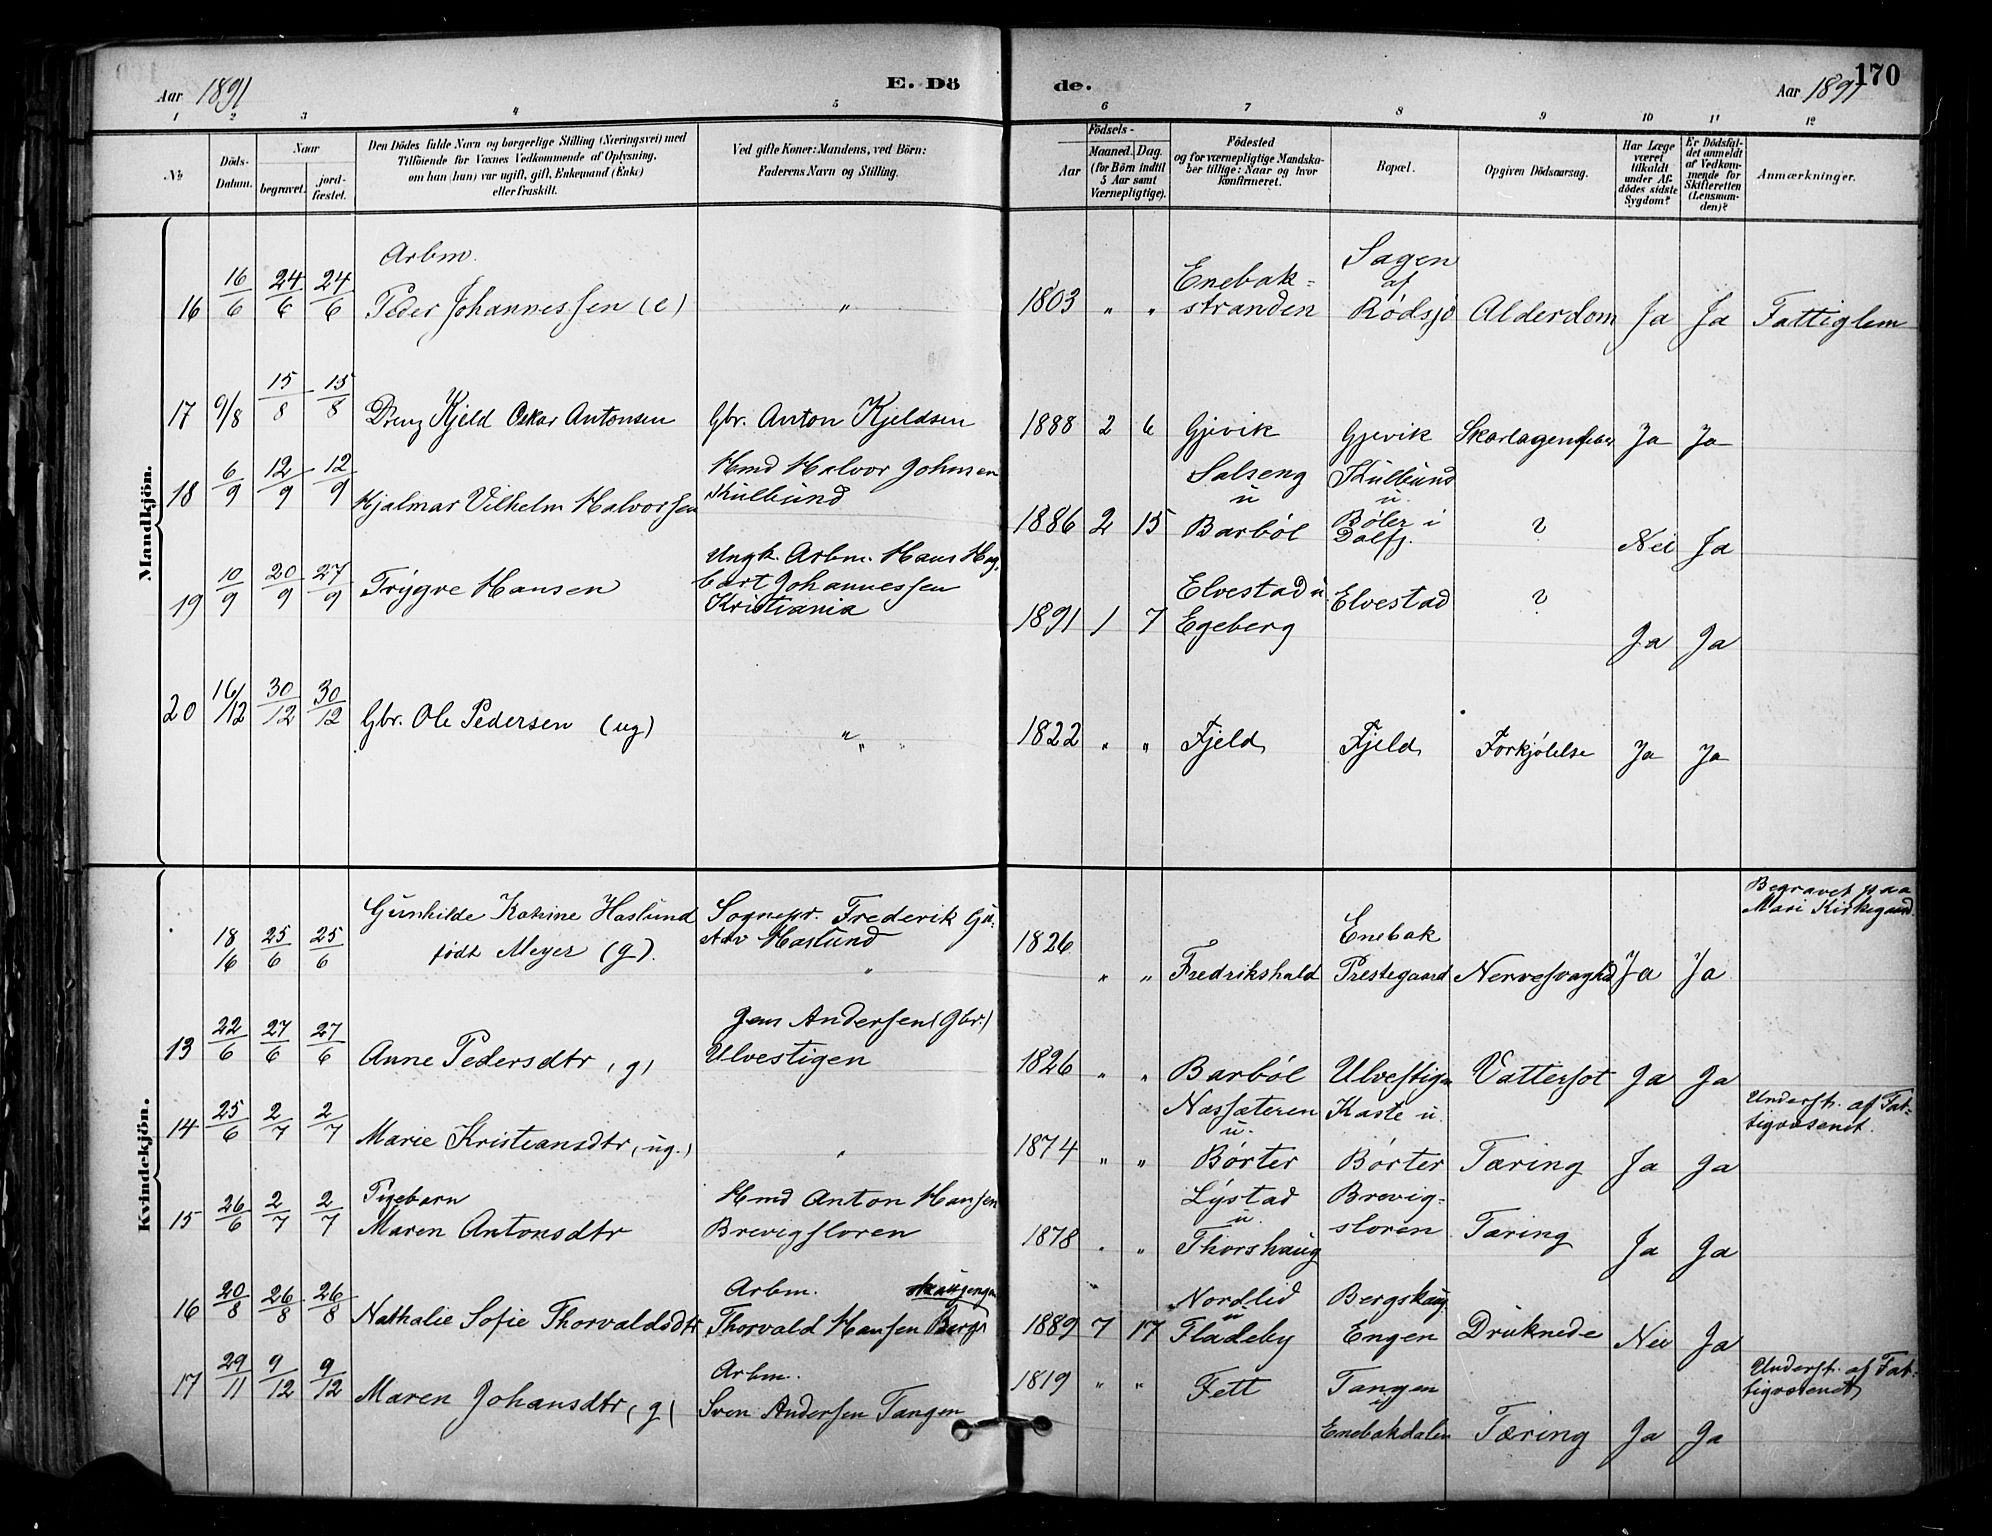 Aar 1891 E. Dö
1 2 3 4 5
No
Döds-Datum.
Naar
begravet.
jord-fæstet.
Den Dödes fulde Navn og borgerlige Stilling (Næringsvei) med
Tilföiende for Voxnes Vedkommende af Oplysning,
om han (hun) var ugift, gift, Enkemand (Enke)
eller fraskilt.
Ved gifte Koner: Mandens, ved Börn:
Faderens Navn og Stilling.
Mandkjön.
Arbm.
16 16/6 24/6 24/6 Peder Johannessen (e) "
17 9/8 15/8 15/8 Dreng Kjeld Oskar Antonsen Gbr. Anton Kjeldsen
18 6/9 12/9 12/9 Hjalmar Vilhelm Halvorsen Hmd Halvor Johnsen
Kulbund
19 10/9 20/9 27/9 Trygve Hansen Ungk. Arbm. Hans Hag
bart Johannessen
Kristiania
20 16/12 30/12 30/12 Gbr. Ole Pedersen (ug) "
Kvindekjön.
18/6 25/6 25/6 Gunhilde Katrine Haslund Sognepr. Frederik Gu-
født Meyer (g). stav Haslund
13 22/6 27/6 27/6 Anne Pedersdtr (g) Jens Andersen (Gbr.)
Ulvestigen
14 25/6 2/7 2/7 Marie Kristiansdtr (ug.) "
15 26/6 2/7 2/7 Pigebarn
Maren Antonsdtr Hmd Anton Hansen
Brevigsloren
16 20/8 26/8 26/8 Nathalie Sofie Thorvaldsdtr Arbm.
Thorvald Hansen
17 29/11 9/12 9/12 Maren Johansdtr (g) Arbm.
Sven Andersen Tangen
de. Aar 1891 170
6 7 8 9 10 11 12
Födsels-
Aar
Maaned. Dag.
(for Börn indtil
5 Aar samt
Værnepligtige).
Födested
og for værnepligtige Mandska-
ber tillige: Naar og hvor
konfirmeret.
Bopæl.
Opgiven Dödsaarsag.
Har Læge
været
tilkaldt
under Af-
dödes sidste
Sygdom?
Er Dödsfal-
det anmeldt
af Vedkom-
mende for
Skifteretten
(Lensman-
den)?
Anmærkninger.
1803 " " Enebak-
stranden Sagen
af
Rødsjø Alderdom Ja Ja Fattiglem
1888 2 6 Gjevik Gjevik Skarlagensfeber Ja Ja
1886 2 15 Salseng
u
Barbøl Kulbund
u.
Bøler i
Dalfj. ? Nei Ja
1891 1 7 Elvestad u.
Egeberg Elvestad ? Ja Ja
1822 " " Fjeld Fjeld Forkjølelse Ja Ja
1826 " " Fredrikshald Enebak
Prestegaard Nervesvaghed Ja Ja Begravet paa
Mari Kirkegaard.
1826 " " Barbøl Ulvestigen Vattersot Ja Ja
1874 " " Næssæteren
u.
Børter Kaste u.
Børter Tæring Ja Ja Underst. af Fat-
tigvæsenet.
1878 " " Lystad
u.
Thorshaug Brevig-
sloren Tæring Ja Ja
1889 7 17 Nordlid
u
Fladeby Bergskaug
Engen Druknede Nei Ja
1819 " " Fett Tangen
Enebakdalen Tæring Ja Ja Underst. af Fat-
tigvæsenet